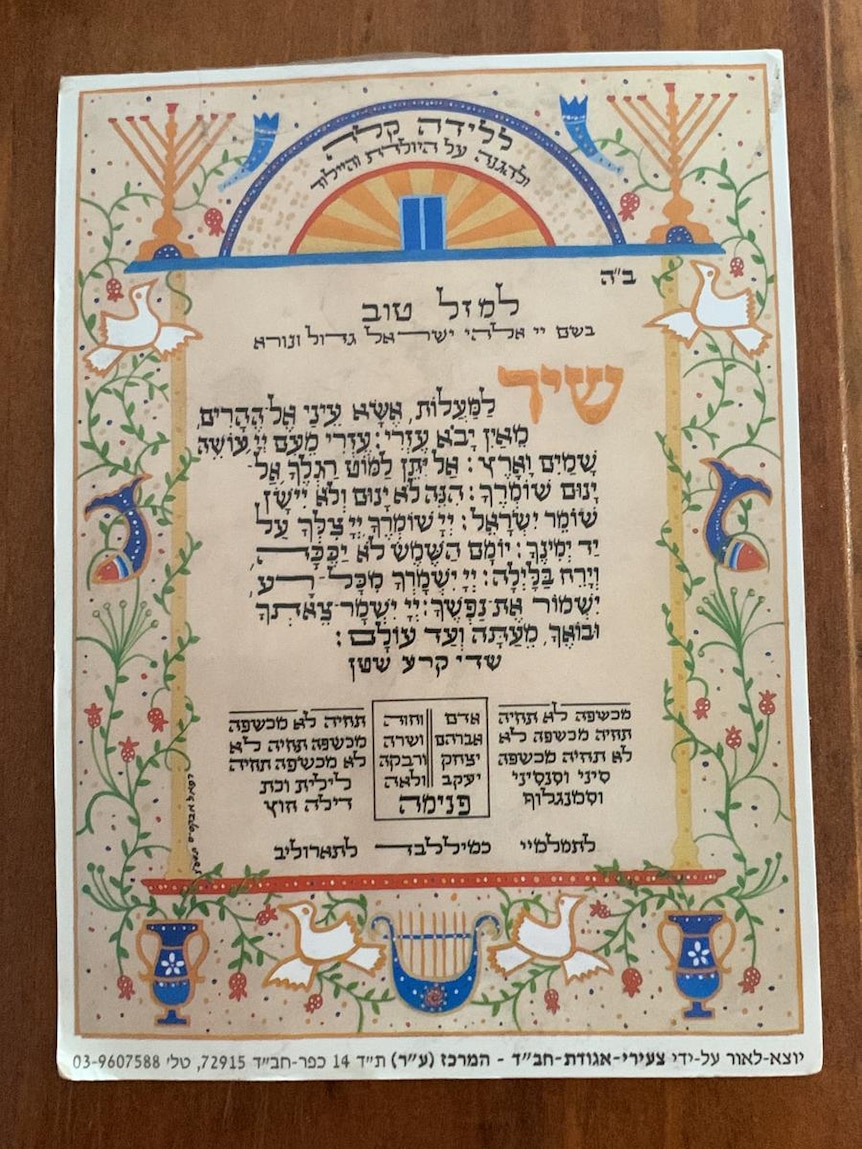 ללידה קלה
ולהגנה על היולדת והיילוד
ב"ה
למזל טוב
בשם יי אלהי ישראל גדול ונורא
שיר
לַמַּעֲלוֹת, אֶשָּׂא עֵינַי אֶל הֶהָרִים,
מֵאַיִן יָבֹא עֶזְרִי: עֶזְרִי מֵעִם יְיָ, עוֹשֵׂה
שָׁמַיִם וָאָרֶץ: אַל יִתֵּן לַמּוֹט רַגְלֶךָ אַל
יָנוּם שׁוֹמְרֶךָ: הִנֵּה לֹא יָנוּם וְלֹא יִישָׁן
שׁוֹמֵר יִשְׂרָאֵל: יְיָ שׁוֹמְרֶךָ יְיָ צִלְּךָ עַל
יַד יְמִינֶךָ: יוֹמָם הַשֶּׁמֶשׁ לֹא יַכֶּכָּה
וְיָרֵחַ בַּלָּיְלָה: יְיָ יִשְׁמָרְךָ מִכָּל רָע,
יִשְׁמוֹר אֶת נַפְשֶׁךָ: יְיָ יִשְׁמָר צֵאתְךָ
וּבוֹאֶךָ, מֵעַתָּה וְעַד עוֹלָם:
שדי קרע שטן
מכשפה לא תחיה
תחיה מכשפה לא
לא תחיה מכשפה
סיני וסנסיני
וסמנגלוף
אדם וחוה
אברהם ושרה
יצחק ורבקה
יעקב ולאה
פנימה
תחיה לא מכשפה
מכשפה תחיה לא
לא מכשפה תחיה
לילית וכת
דילה חוץ
לתמלמיי כמיללבד לתארוליב
יוצא-לאור על-ידי צעירי-אגודת-חב"ד - המרכז (ע"ר) ת"ד 14 כפר-חב"ד 72915, טל' 03-9607588